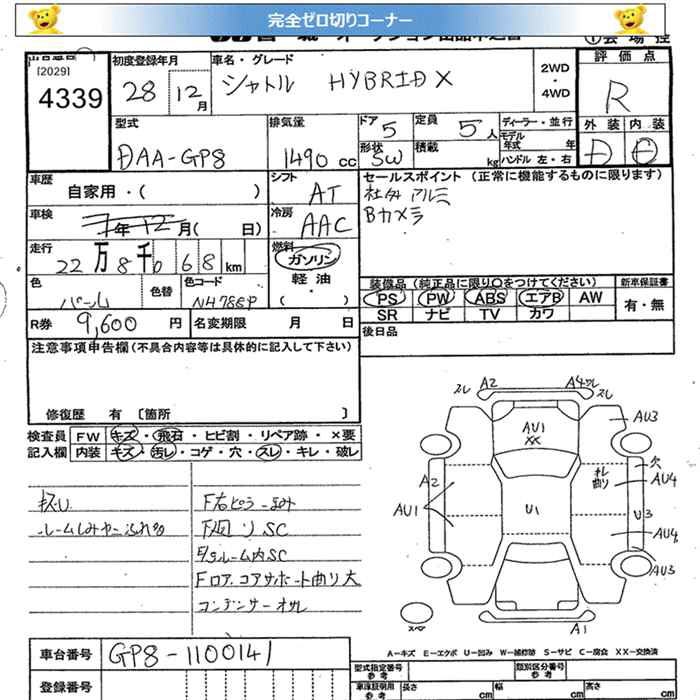 完全ゼロ切りコーナー
[2029]
4339
初度登録年月
28 12月
車名・グレード
シャトル HYBRID X
2WD
・
4WD
評価点
R
外装 内装
D
型式
DAA-GP8
排気量
1490 cc
ドア 5
形状 SW
定員 5人
積載 kg
ディーラー・並行
モデル年式 年
ハンドル 左・右
車歴
自家用・( )
シフト
AT
セールスポイント(正常に機能するものに限ります)
社外 アルミ
Bカメラ
車検
7年12月( 日)
冷房
AAC
走行
22万8千068km
燃料
ガソリン
軽油
・( )
色
パール
色替
色コード
NH788P
装備品(純正品に限り○をつけてください)
PS PW ABS エアB AW
SR ナビ TV カワ
新車保証書
有・無
R券 9,600円
名変期限 月 日
後日品
注意事項申告欄(不具合内容等は具体的に記入して下さい)
修復歴 有 [箇所 ]
検査員
記入欄
FW キズ・飛石・ヒビ割・リペア跡・×要
内装 キズ・汚レ・コゲ・穴・スレ・キレ・破レ
扱い
F右ピラー
SC
ルーム内SC
Fロア、コアサポート曲り大
コンデンサーオサレ
A2
A4
AU1
XX
AU3
A2
AU1
U1
曲り
欠
AU4
U3
AU4
AU3
スペア
A1
A-キズ E-エクボ U-凹み W-補修跡 S-サビ C-腐食 XX-交換済
車台番号 GP8-1100141
登録番号
型式指定番号 参考
類別区分番号 参考
車庫証明用 参考
長さ cm
幅 cm
高さ cm